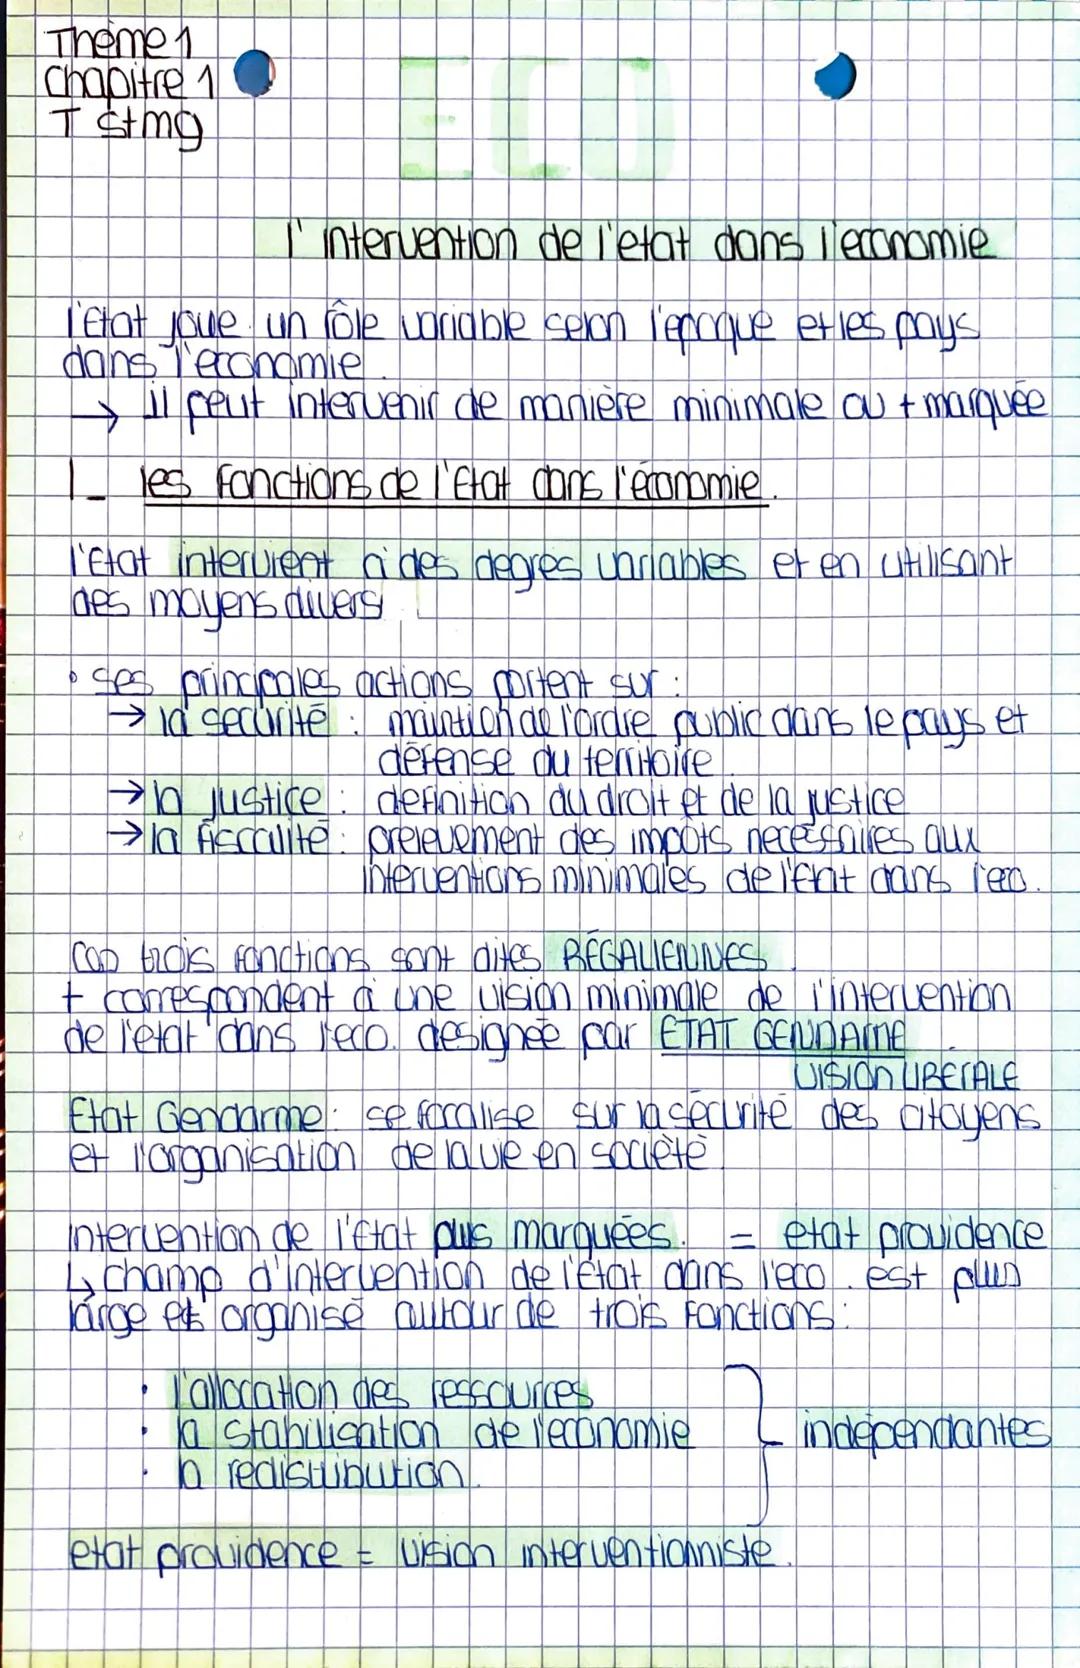 Thème 1
Chapitre 1
T stmg
ECO
l'intervention de l'etat dans l'economie
l'Etat joue un rôle variable selon l'epoque et les pays
dans l'economie.
→ il peut intervenir de manière minimale ou + marquée
I_ les fonctions de l'Etat dans l'économie.
l'Etat intervient à des degrès variables et en utilisant
des moyens divers
• ses principales actions portent sur :
→ la securité : maintien de l'ordre public dans le pays et
défense du territoire.
→ la justice : definition du droit et de la justice
→ la fiscalité : prelevement des impôts necessaires aux
interventions minimales de l'Etat dans l'eco.
Ces trois fonctions sont dites RÉGALIENNES.
+ correspondent à une vision minimale de l'intervention
de l'etat dans l'eco. designée par ETAT GENDARME.
VISION LIBERALE
Etat Gendarme : se focalise sur la sécurité des citoyens
et l'organisation de la vie en sociètè.
intervention de l'Etat plus marquées. = etat providence
↳ champ d'intervention de l'Etat dans l'eco. est plus
large et organisé autour de trois fonctions :
• l'allocation des ressources
• la stabilisation de l'economie
• la redistribution.
indépendantes
etat providence = vision interventionniste.